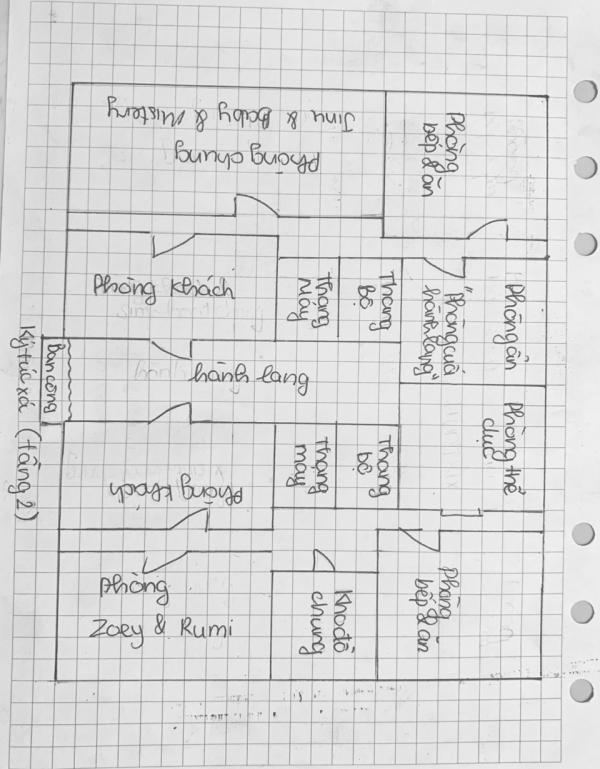 Phòng chung
Jinu & Baby & Mistery
Phòng
bếp & ăn
Phòng khách
Thang
máy
Thang
bộ
"Phòng cuối
hành lang"
Phòng ăn
Ban công
Ký túc xá (tầng 2)
Phòng thể
dục
Phòng khách
Thang
máy
Thang
bộ
Phòng
Zoey & Rumi
Kho đồ
chung
Phòng
bếp & ăn